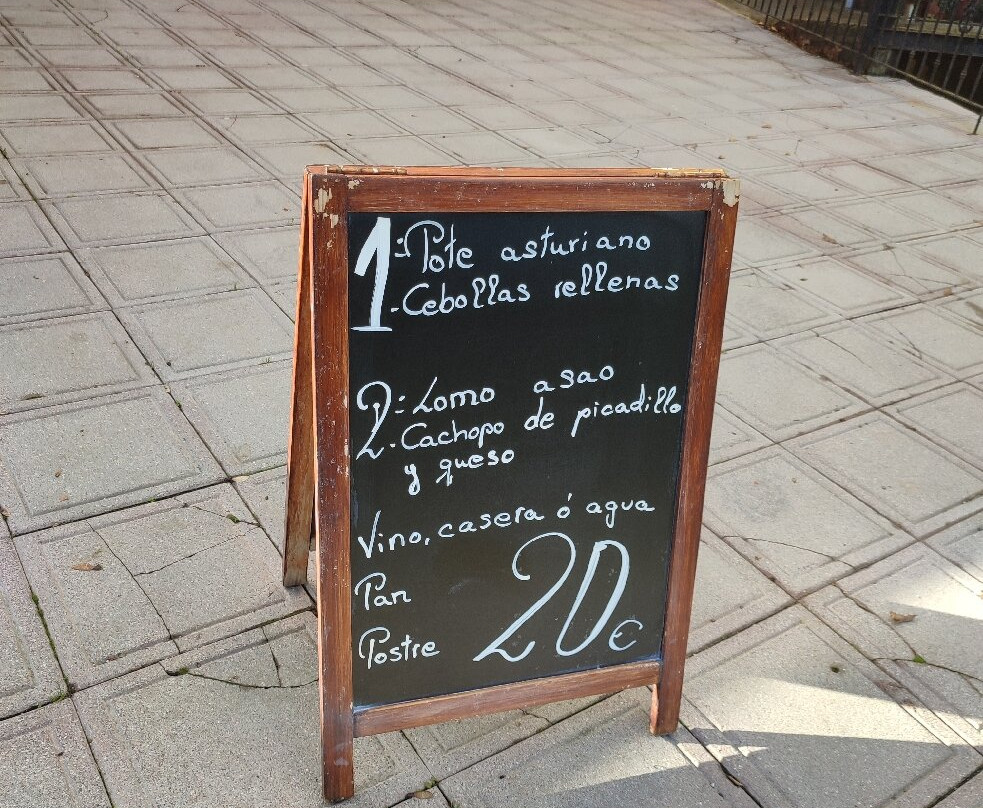 1:Pote asturiano
-Cebollas rellenas
2:Lomo asao
-Cachopo de picadillo
y queso
Vino, casera ó agua
Pan
Postre 20€